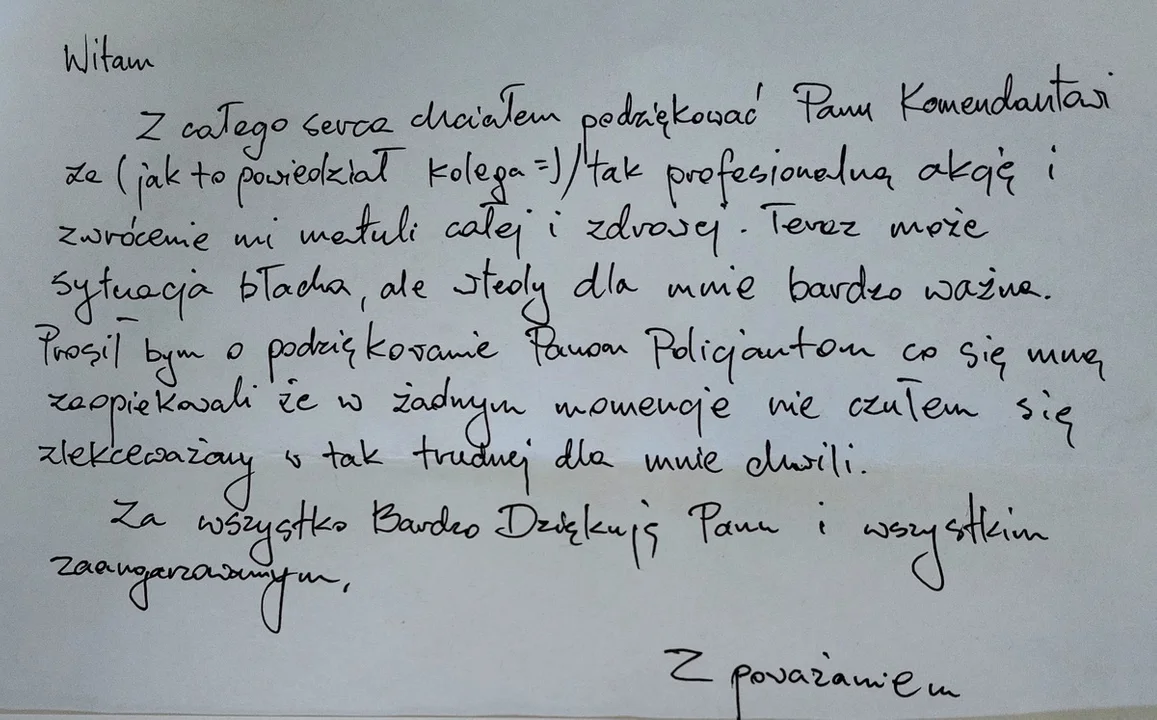 Witam
Z całego serca chciałem podziękować Panu Komendantowi
za (jak to powiedział kolega =) ) tak profesionalną akcję i
zwrócenie mi matuli całej i zdrowej. Teraz może
sytuacja błacha, ale wtedy dla mnie bardzo ważna.
Prosił bym o podziękowanie Panom Policjantom co się mną
zaopiekowali że w żadnym momencie nie czułem się
zlekceważony w tak trudnej dla mnie chwili.
Za wszystko Bardzo Dziękuję Panu i wszystkim
zaangarzowanym,
Z poważaniem